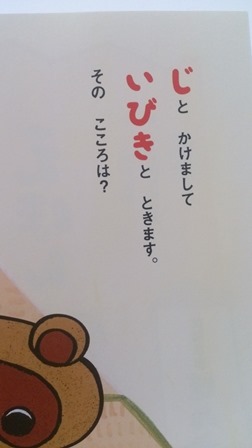 じと かけまして
いびきと ときます。
その こころは?